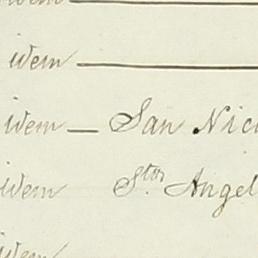 idem
idem
idem — San Nic
idem Stor Angel
idem